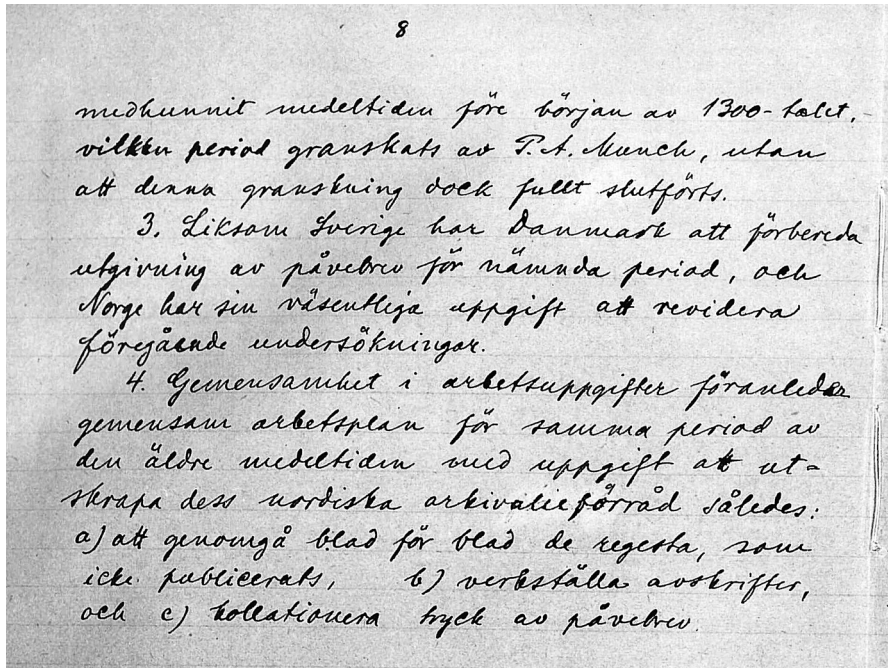 8
medhunnit medeltiden före början av 1300-talet,
vilken period granskats av P. A. Munch, utan
att denna granskning dock fullt slutförts.
3. Liksom Sverige har Danmark att förbereda
utgivning av påvebrev för nämnda period, och
Norge har sin väsentliga uppgift att revidera
föregående undersökningar.
4. Gemensamhet i arbetsuppgifter föranleder
gemensam arbetsplan för samma period av
den äldre medeltiden med uppgift att ut-
skrapa dess nordiska arkivalieförråd således:
a) att genomgå blad för blad de regesta, som
icke publicerats, b) verkställa avskrifter,
och c) kollationera tryck av påvebrev.